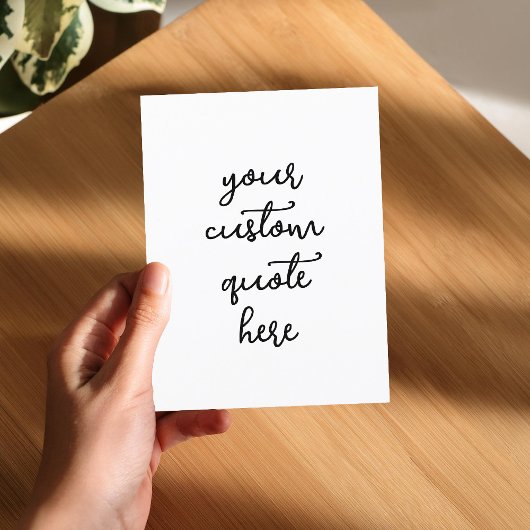 your
custom
quote
here